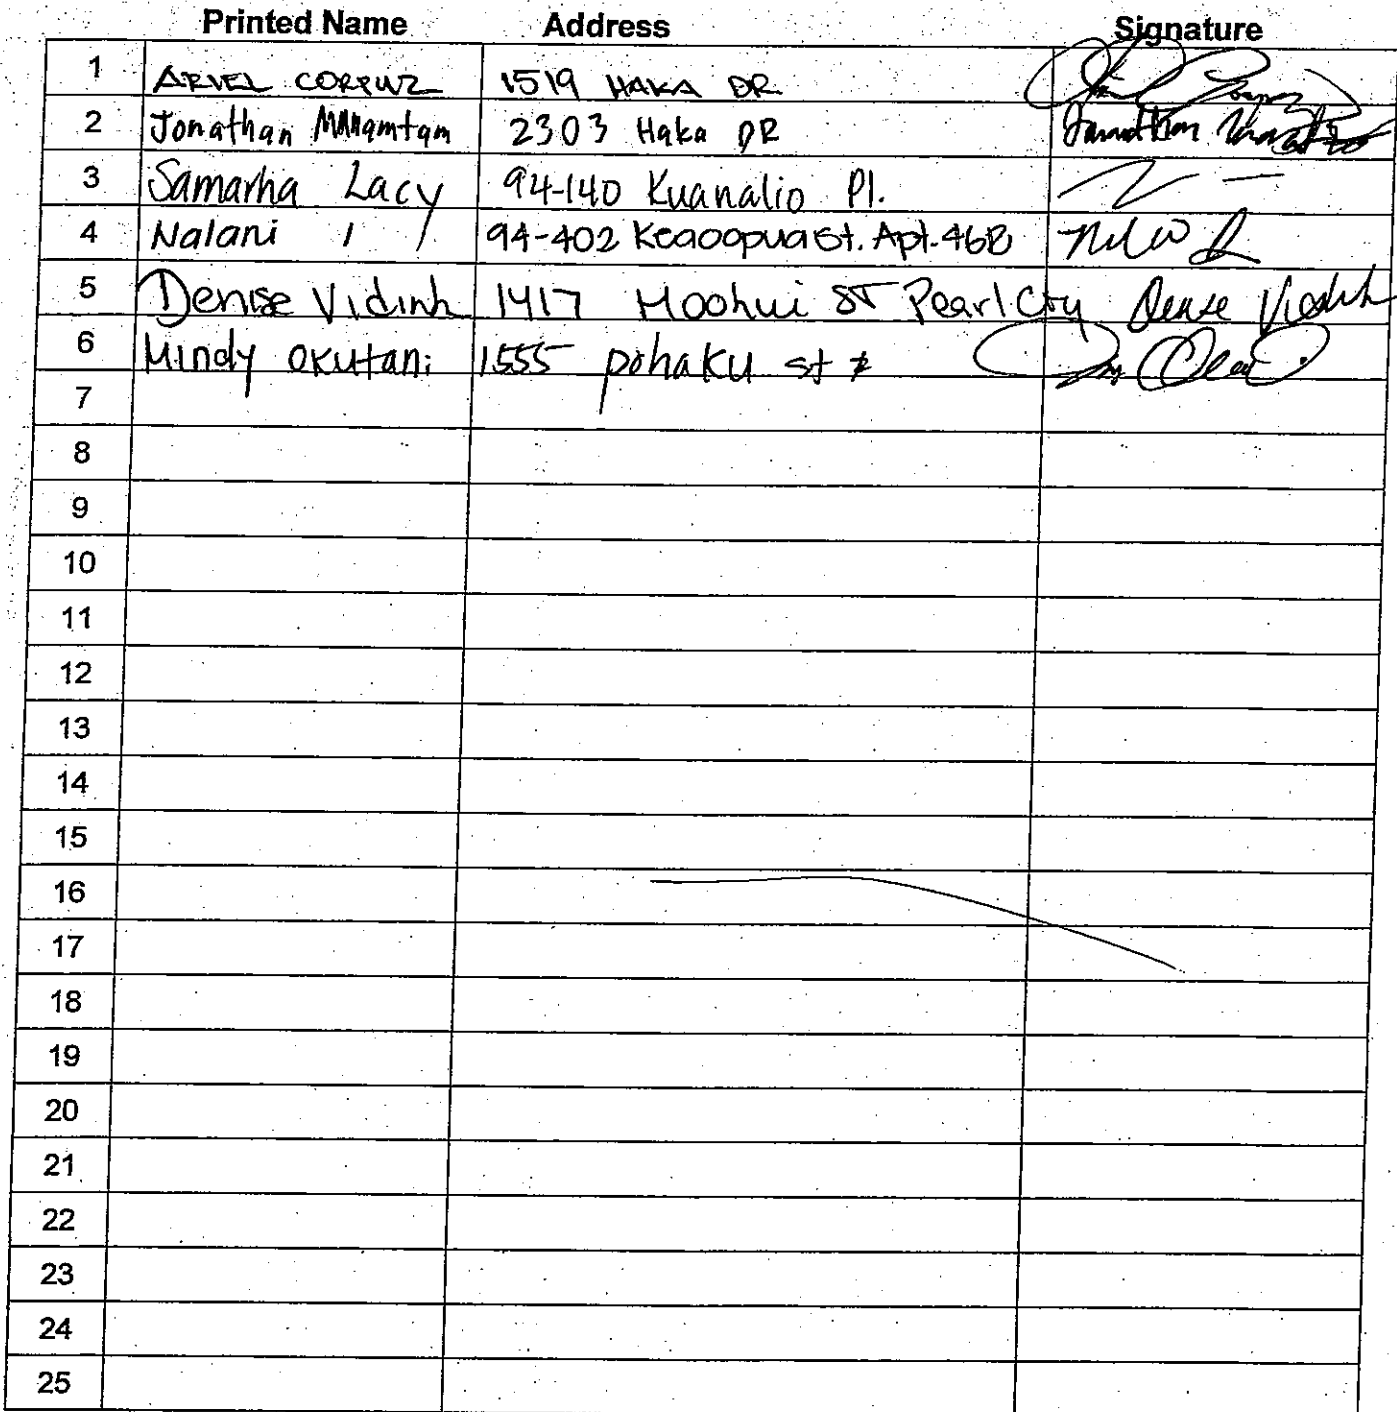 Printed Name Address Signature
1 ARVEL CORPUZ 1519 HAKA DR
2 Jonathan Manamtam 2303 Haka DR
3 Samarha Lacy 94-140 Kuanalio Pl.
4 Nalani 94-402 Keaoopua St. Apt. 46B
5 Denise Vidinh 1417 Hoohui ST Pearl City Denise Vidinh
6 Mindy Okutani 1555 pohaku st #
7
8
9
10
11
12
13
14
15
16
17
18
19
20
21
22
23
24
25